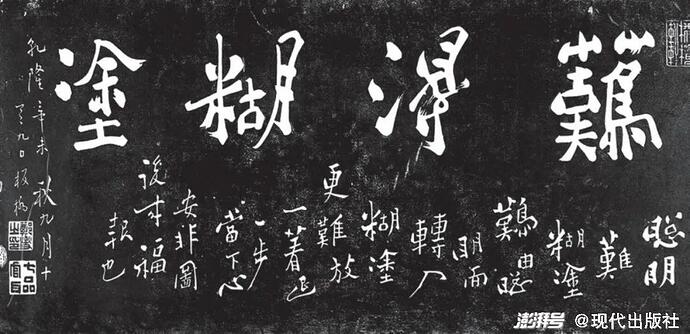 難得糊塗
聰明
難
糊塗
難由聰
明而
轉入
糊塗
更難放
一着退
一步
當下心
安非圖
後來福
報也
乾隆辛未秋九月十
九日板橋
七品官耳
澎湃号 @现代出版社